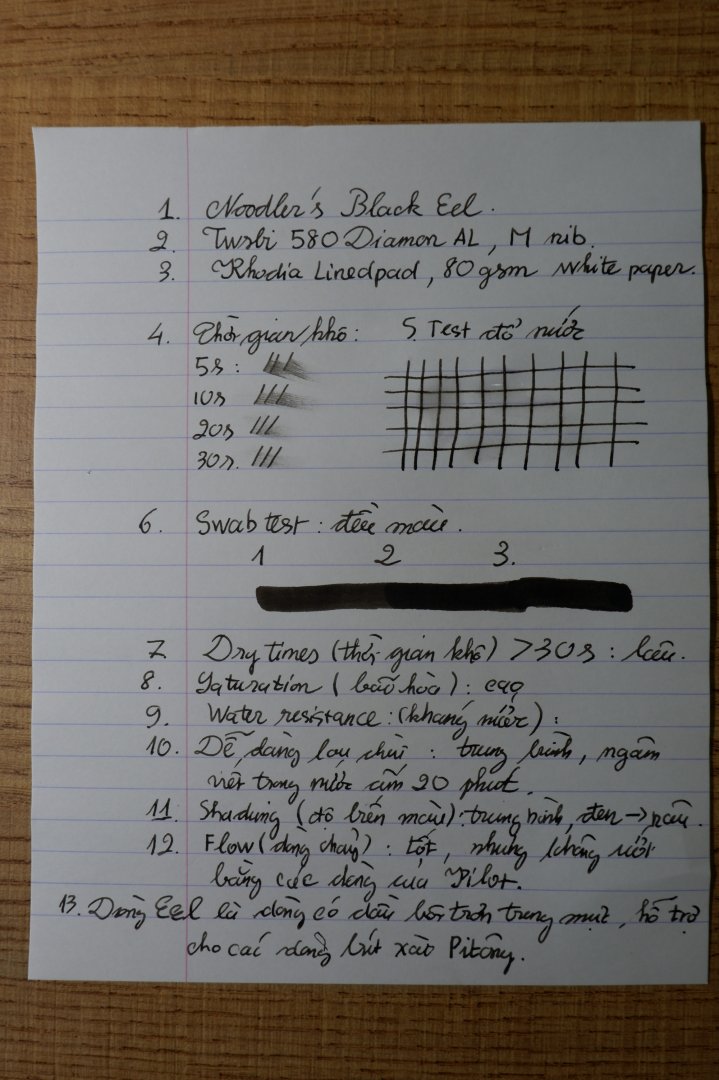 1. Noodler's Black Eel.
2. Twsbi 580 Diamon AL, M nib.
3. Rhodia Linedpad, 80 gsm white paper.
4. Thời gian khô: 5. Test đổ nước
5s:
10s
20s
30s.
6. Swab test: đều màu.
1 2 3.
7. Dry times (thời gian khô) >30s: lâu.
8. Saturation (bão hòa): cao
9. Water resistance: (kháng nước):
10. Dễ dàng lau chùi: trung bình, ngâm
viết trong nước ấm 20 phút.
11. Shading (độ biến màu): trung bình, đen → nâu.
12. Flow (dòng chảy): tốt, nhưng không ướt
bằng các dòng của Pilot.
13. Dòng Eel là dòng có dầu bôi trơn trong mực, hỗ trợ
cho các dòng bút xài Pitông.